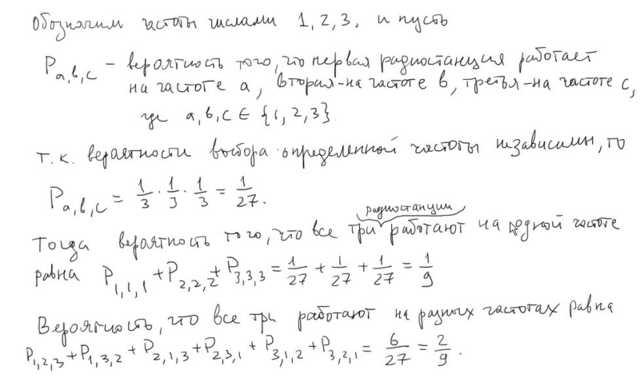 Обозначим частоты числами 1, 2, 3, и пусть
P a,b,c – вероятность того, что первая радиостанция работает
на частоте a, вторая – на частоте b, третья – на частоте c,
где a, b, c ∈ {1, 2, 3}.
Т.к. вероятности выбора определенной частоты независимы, то
P a,b,c = 1/3 · 1/3 · 1/3 = 1/27.
радиостанции
Тогда вероятность того, что все три работают на одной частоте
равна P 1,1,1 + P 2,2,2 + P 3,3,3 = 1/27 + 1/27 + 1/27 = 1/9
Вероятность, что все три работают на разных частотах равна
P 1,2,3 + P 1,3,2 + P 2,1,3 + P 2,3,1 + P 3,1,2 + P 3,2,1 = 6/27 = 2/9.